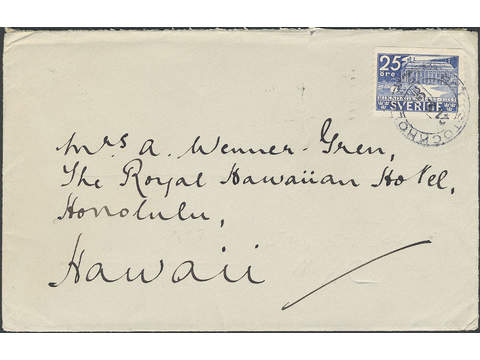 25
öre
SVERIGE
STOCKHO
Mrs A. Wenner-Gren,
The Royal Hawaiian Hotel,
Honolulu,
Hawaii